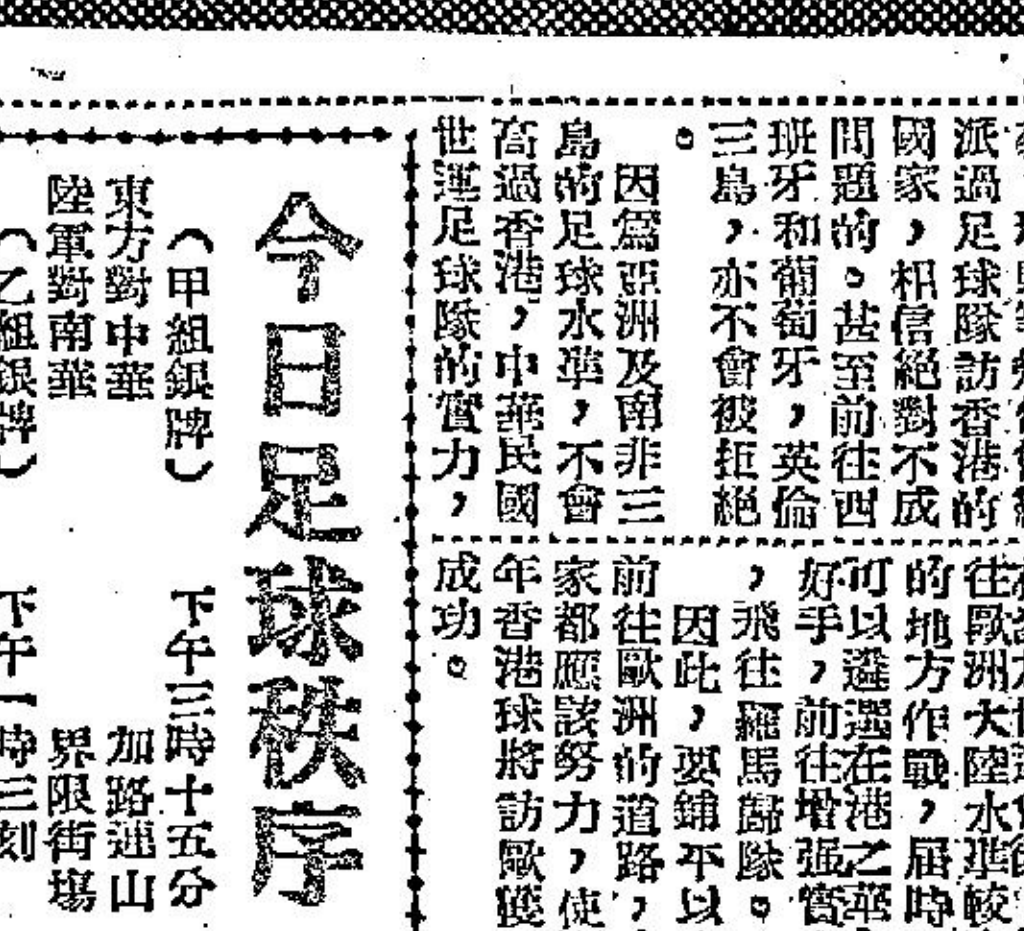 派過足球隊訪香港的
國家,相信絕對不成
問題的。甚至前往西
班牙和葡萄牙,英倫
三島,亦不會被拒絕
。
因爲亞洲及南非三
島的足球水準,不會
高過香港,中華民國
世運足球隊的實力,
往歐洲大陸水準較
的地方作戰,屆時
可以遴選在港之華
好手,前往增强實
,飛往羅馬歸隊。
因此,要鋪平以
前往歐洲的道路,
家都應該努力,使
年香港球將訪歐獲
成功。
今日足球秩序
(甲組銀牌) 下午三時十五分
東方對中華 加路連山
陸軍對南華 界限街場
(乙組銀牌) 下午一時三刻